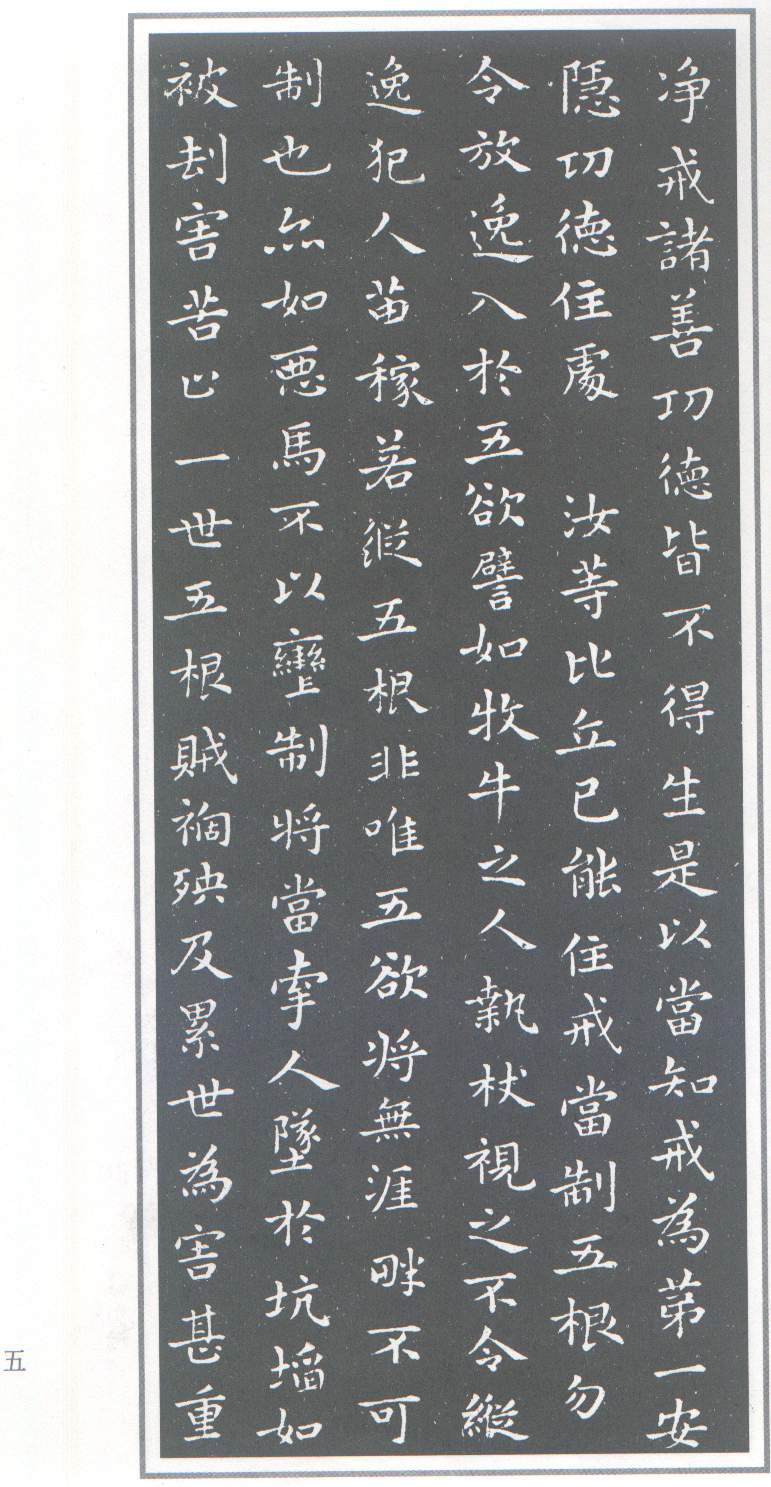 净戒諸善功德皆不得生是以當知戒為苐一安
隱功德住處　汝等比丘已能住戒當制五根勿
令放逸入於五欲譬如牧牛之人執杖視之不令縱
逸犯人苗稼若縱五根非唯五欲將無涯畔不可
制也亦如惡馬不以轡制將當牽人墜於坑埳如
被刦害苦止一世五根賊禍殃及累世為害甚重
五